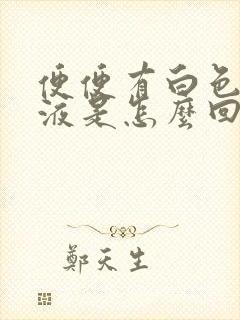 便便有白色
液是怎麼回
鄭天生